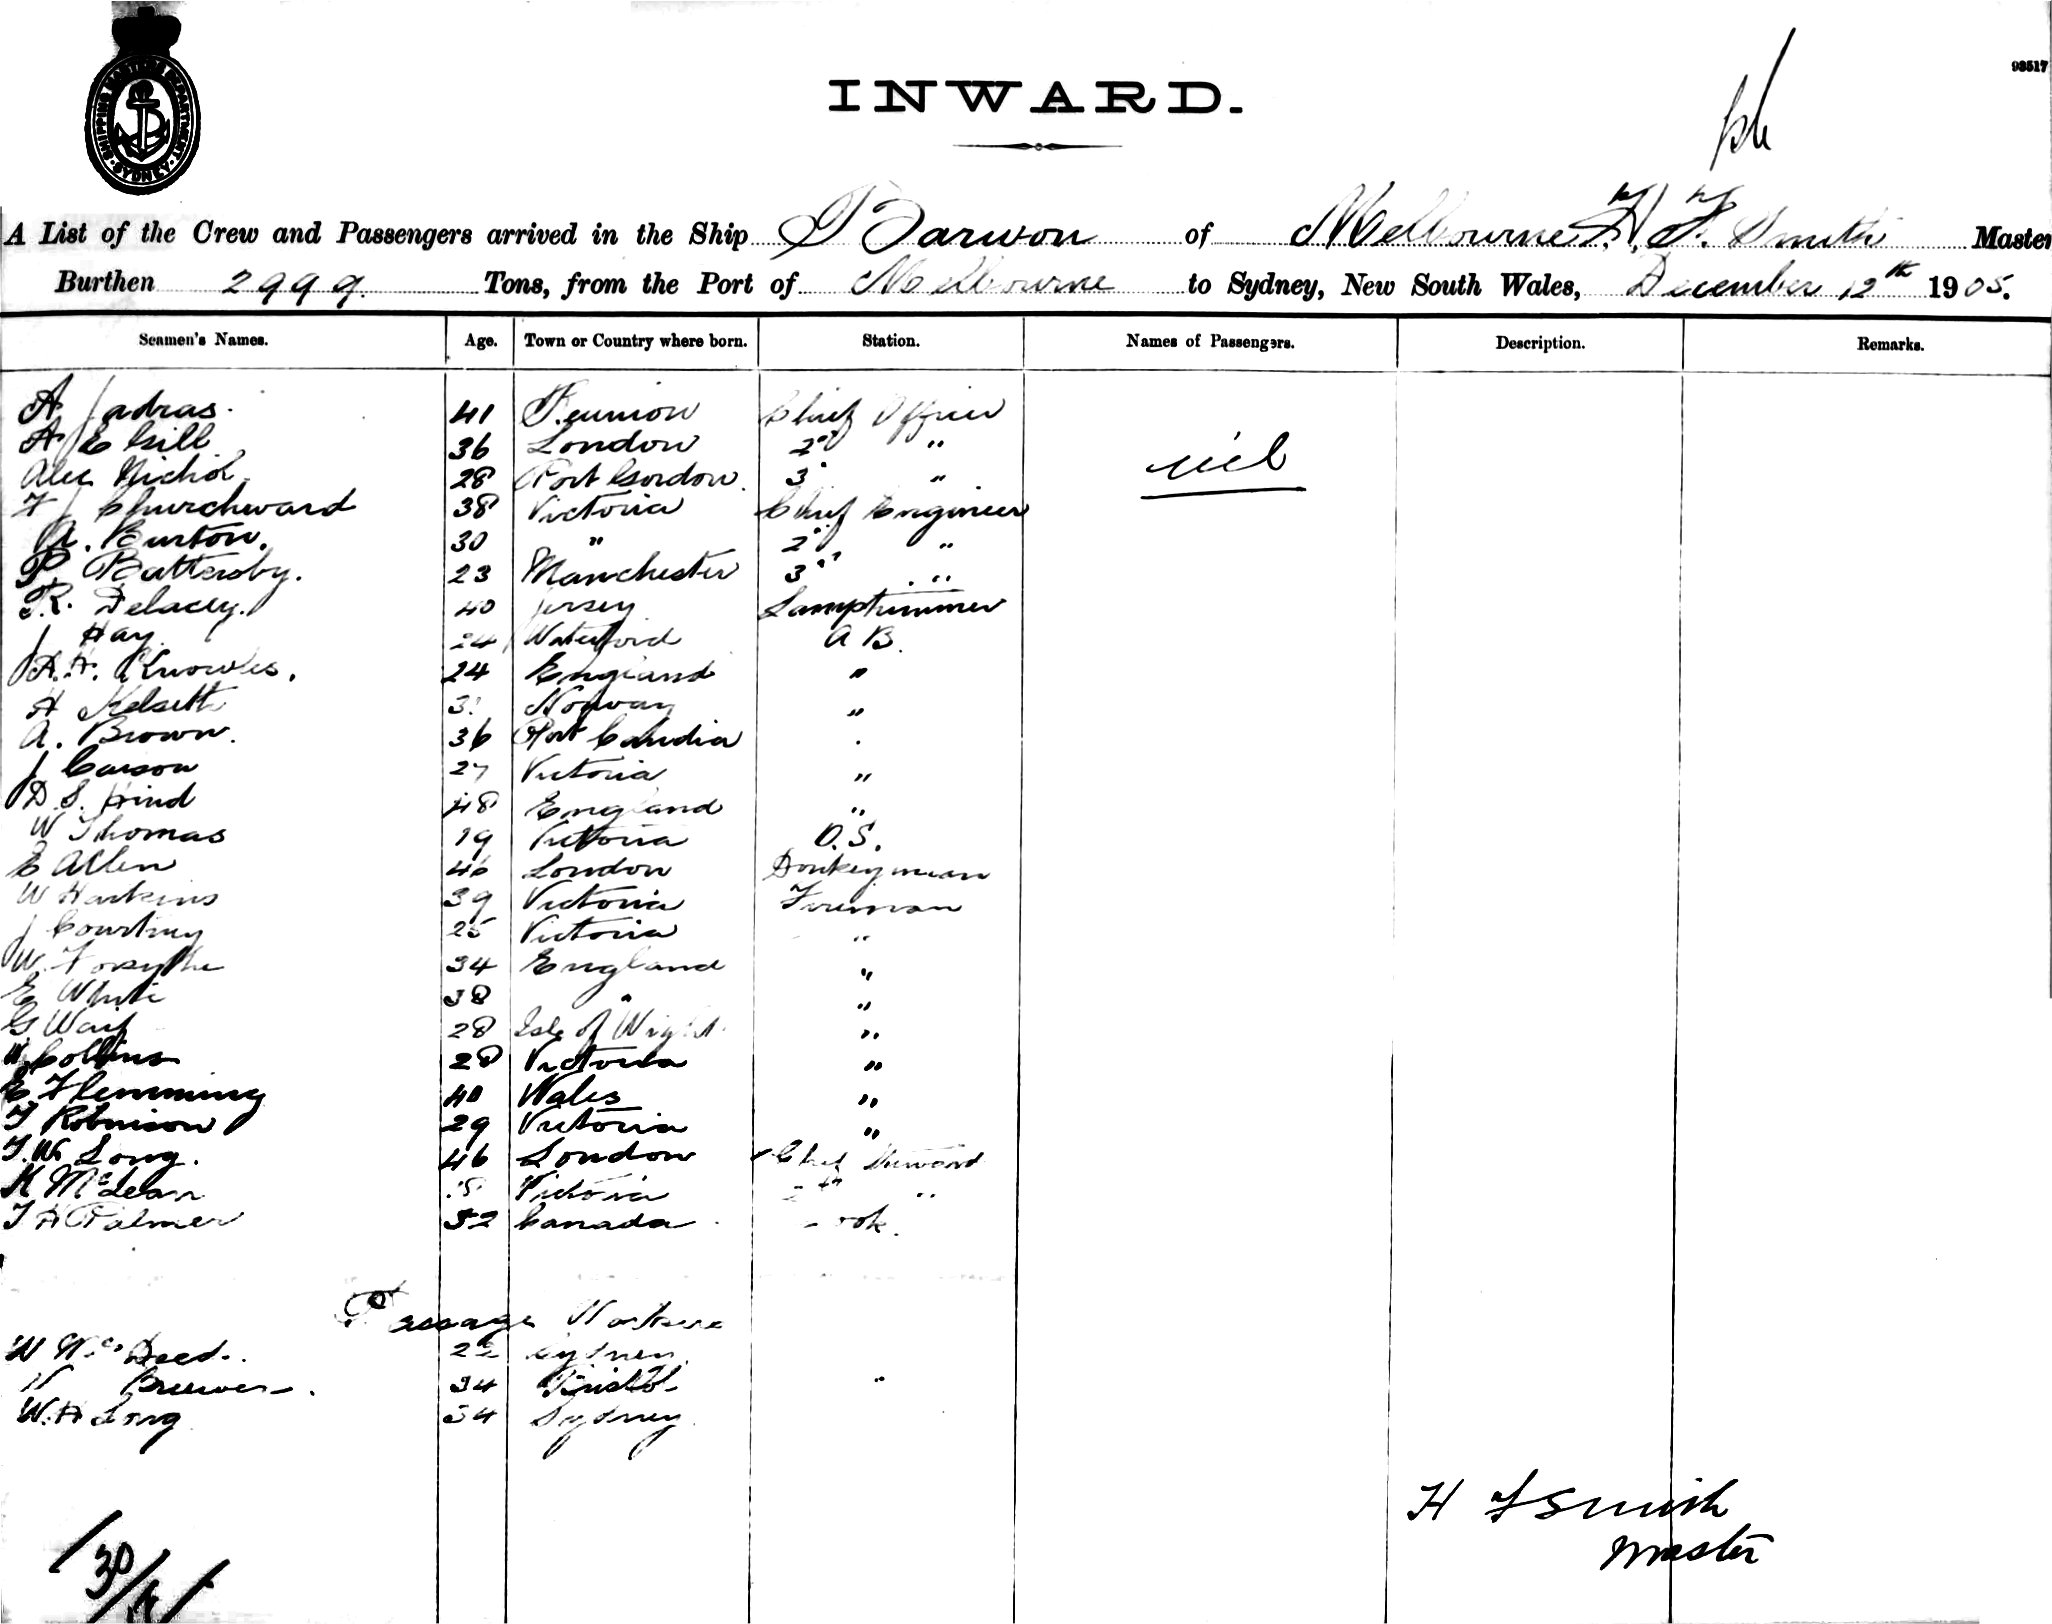 SHIPPING MASTERS DEPARTMENT SYDNEY
93517
INWARD.
A List of the Crew and Passengers arrived in the Ship Barwon of Melbourne H. F. Smith Master
Burthen 2999. Tons, from the Port of Melbourne to Sydney, New South Wales, December 12th 1905.
Seamen's Names. Age. Town or Country where born. Station. Names of Passengers. Description. Remarks.
A 41 Reunion Chief Officer
A E Gill 36 London 2nd "
Alec Nichol. 28 Port Gordon. 3 "
nil
F J Churchward 38 Victoria Chief Engineer
A. Burton. 30 " 2nd "
P. Battersby. 23 Manchester 3" "
R. Delacey. 40 Jersey Lamptrimmer
J Hay. 24 Waterford A B.
A. Knowles. 24 England "
A Norway "
A. Brown. 36 Port
J Carson 27 Victoria "
D. S. Hind 48 England "
W Thomas 19 Victoria O.S.
E Allen 46 London Donkeyman
W Harkins 39 Victoria Fireman
J Courtney 25 Victoria "
W. Forsythe 34 England "
E White 38 " "
G 28 Isle of Wight "
W Collins 28 Victoria "
E. Flemming 40 Wales "
T Robinson 29 Victoria "
T. W. Long. 46 London Chief Steward
K McLean Victoria 2nd "
T H Palmer 52 Canada ook.
Passage Workers
W Mc 22 Sydney
34 Bristol "
W. H Long 34 Sydney.
H F Smith
Master